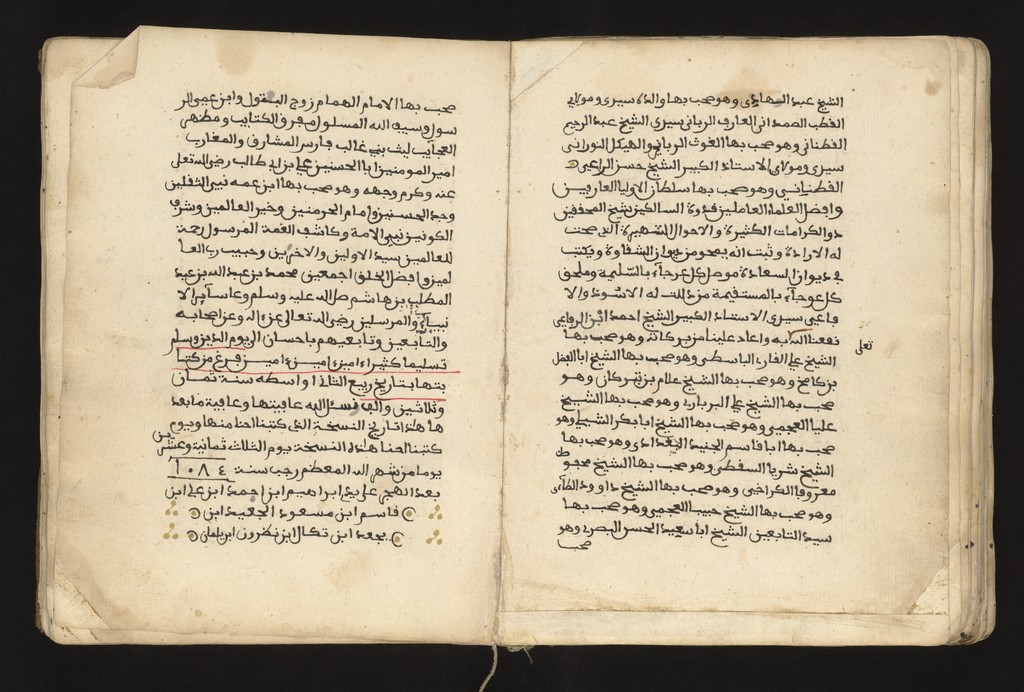 الشيخ عبد الهادي وهو صحب بها والده سيدي ومولاي
القطب الصمداني العارف الرباني سيدي الشيخ عبد الرحيم
القطناني وهو صحب بها الغوث الرباني والهيكل النوراني
سيدي ومولاي الاستاذ الكبير الشيخ حسن الراعي
القطناني وهو صحب بها سلطان الاوليا العارفين
وافضل العلماء العاملين قدوة السالكين شيخ المحققين
ذو الكرامات الكثيرة والاحوال الشهيرة الذي صحت
له الارادة وثبت انه يمحو من ديوان الشقاوة ويكتب
في ديوان السعادة موصل كل عرجآء بالسليمة وملحق
كل عوجآء بالمستقيمة من ذلت له الاسود والا
فاعي سيدي الاستاذ الكبير الشيخ احمد ابن الرفاعي
نفعنا الله به واعاد علينا من بركاته وهو صحب بها
تعلى
الشيخ علي القارى الباسطي وهو صحب بها الشيخ ابا الفضل
بن كامخ وهو صحب بها الشيخ علام بن تركان وهو
صحب بها الشيخ علي البرباري وهو صحب بها الشيخ
عليا العجمي وهو صحب بها الشيخ ابا بكر الشبلي وهو
صحب بها ابا قاسم الجنيد البغدادي وهو صحب بها
الشيخ سريا السقطي وهو صحب بها الشيخ محجوظ
معروفا الكراخي وهو صحب بها الشيخ داوود الطآءى
وهو صحب بها الشيخ حبيبا العجمي وهو صحب بها
سيد التابعين الشيخ ابا سعيد الحسن البصري وهو
صحب
صحب بها الامام الهمام زوج البتول وابن عم الر
سول وسيف الله المسلول مفرق الكتايب ومظهر
العجآيب ليث بني غالب فارس المشارق والمغارب
امير المومنين ابا الحسنين علي بن ابي طالب رضي الله تعلى
عنه وكرم وجهه وهو صحب بها ابن عمه نبي الثقلين
وجد الحسنين وامام الحرمين وخير العالمين وشرف
الكونين نبي الامة وكاشف الغمة المرسول رحمة
للعالمين سيد الاولين والاخرين وحبيب رب العا
لمين وافضل الخلق اجمعين محمد بن عبد الله بن عبد
المطلب بن هاشم صلى الله عليه وسلم وعلى سآير الا
نبيآء والمرسلين رضي الله تعالى عن اله وعن اصحابه
والتابعين وتابعيهم باحسان الى يوم الدين وسلم
تسليما كثيرا ءامين ءامين ءامين فرغ من كتا
بتها بتاريخ ربيع الثاني اواسطه سنة ثمان
وثلاثين والف فنسئل الله عافيتها وعافية ما بعد
ها هاذا تاريخ النسخة الذي كتبنا احنا منها ويوم
كتبنا احنا هاذه النسخة يوم الثلاث ثمانية وعشرين
يوما من شهر الله المعظم رجب سنة ١٠٨٤
بعد الهجر على يد ابراهيم ابن احمد ابن علي ابن
قاسم ابن مسعود الجعيد ابن